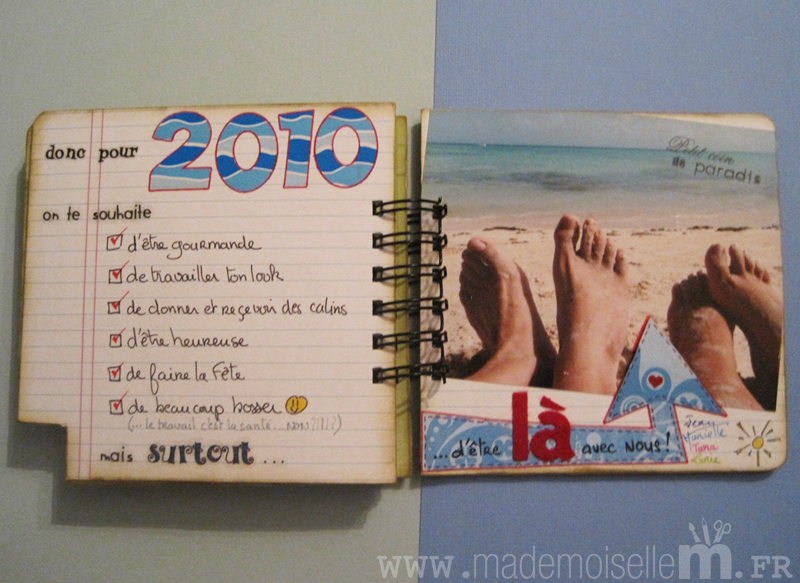 donc pour 2010
on te souhaite
d'être gourmande
de travailler ton look
de donner et reçevoir des calins
d'être heureuse
de faire la Fête
de beaucoup bosser
(... le travail c'est la santé ... NON?!?!?)
mais surtout ...
Petit coin
de paradis
... d'être là avec NOUS!
Murielle
www.mademoisellem.FR